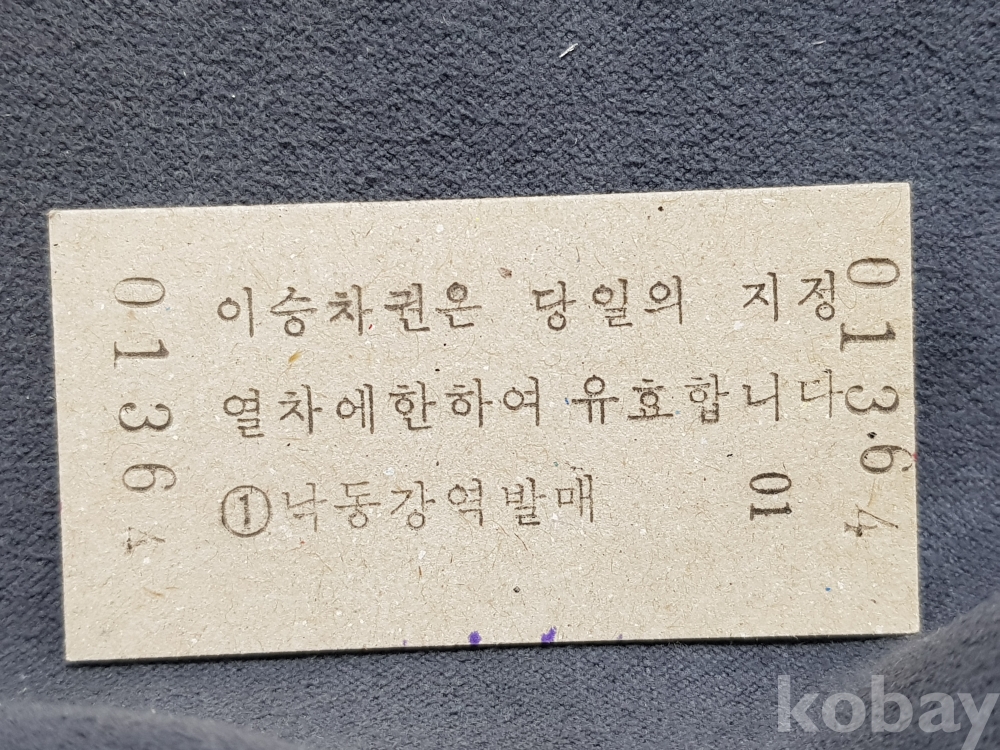 이승차권은 당일의 지정
열차에한하여 유효합니다
①낙동강역발매
01
01364
01364
kobay